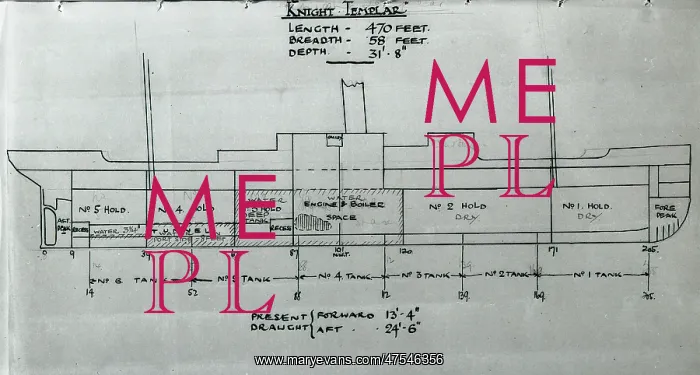 KNIGHT TEMPLAR
LENGTH - 470 FEET.
BREADTH - 58 FEET.
DEPTH. - 31'- 8"
ME
PL
Nº 5 HOLD.
Nº 4 HOLD
WATER
HOLD
DEEP
TANK
WATER
ENGINE & BOILER
SPACE
Nº 2 HOLD
DRY
Nº 1. HOLD.
DRY
FORE
PEAK
AFT.
PEAK
RECESS
WATER
TUNNEL
PORT SIDE
RECESS
ME
PL
0 9 39 87 101 120 171 205.
Nº 6 TANK Nº 5 TANK Nº 4. TANK Nº 3 TANK Nº 2 TANK Nº 1 TANK
14 52 88 112 139
PRESENT DRAUGHT { FORWARD 13'- 4"
AFT. 24'-6"
www.maryevans.com/47546356